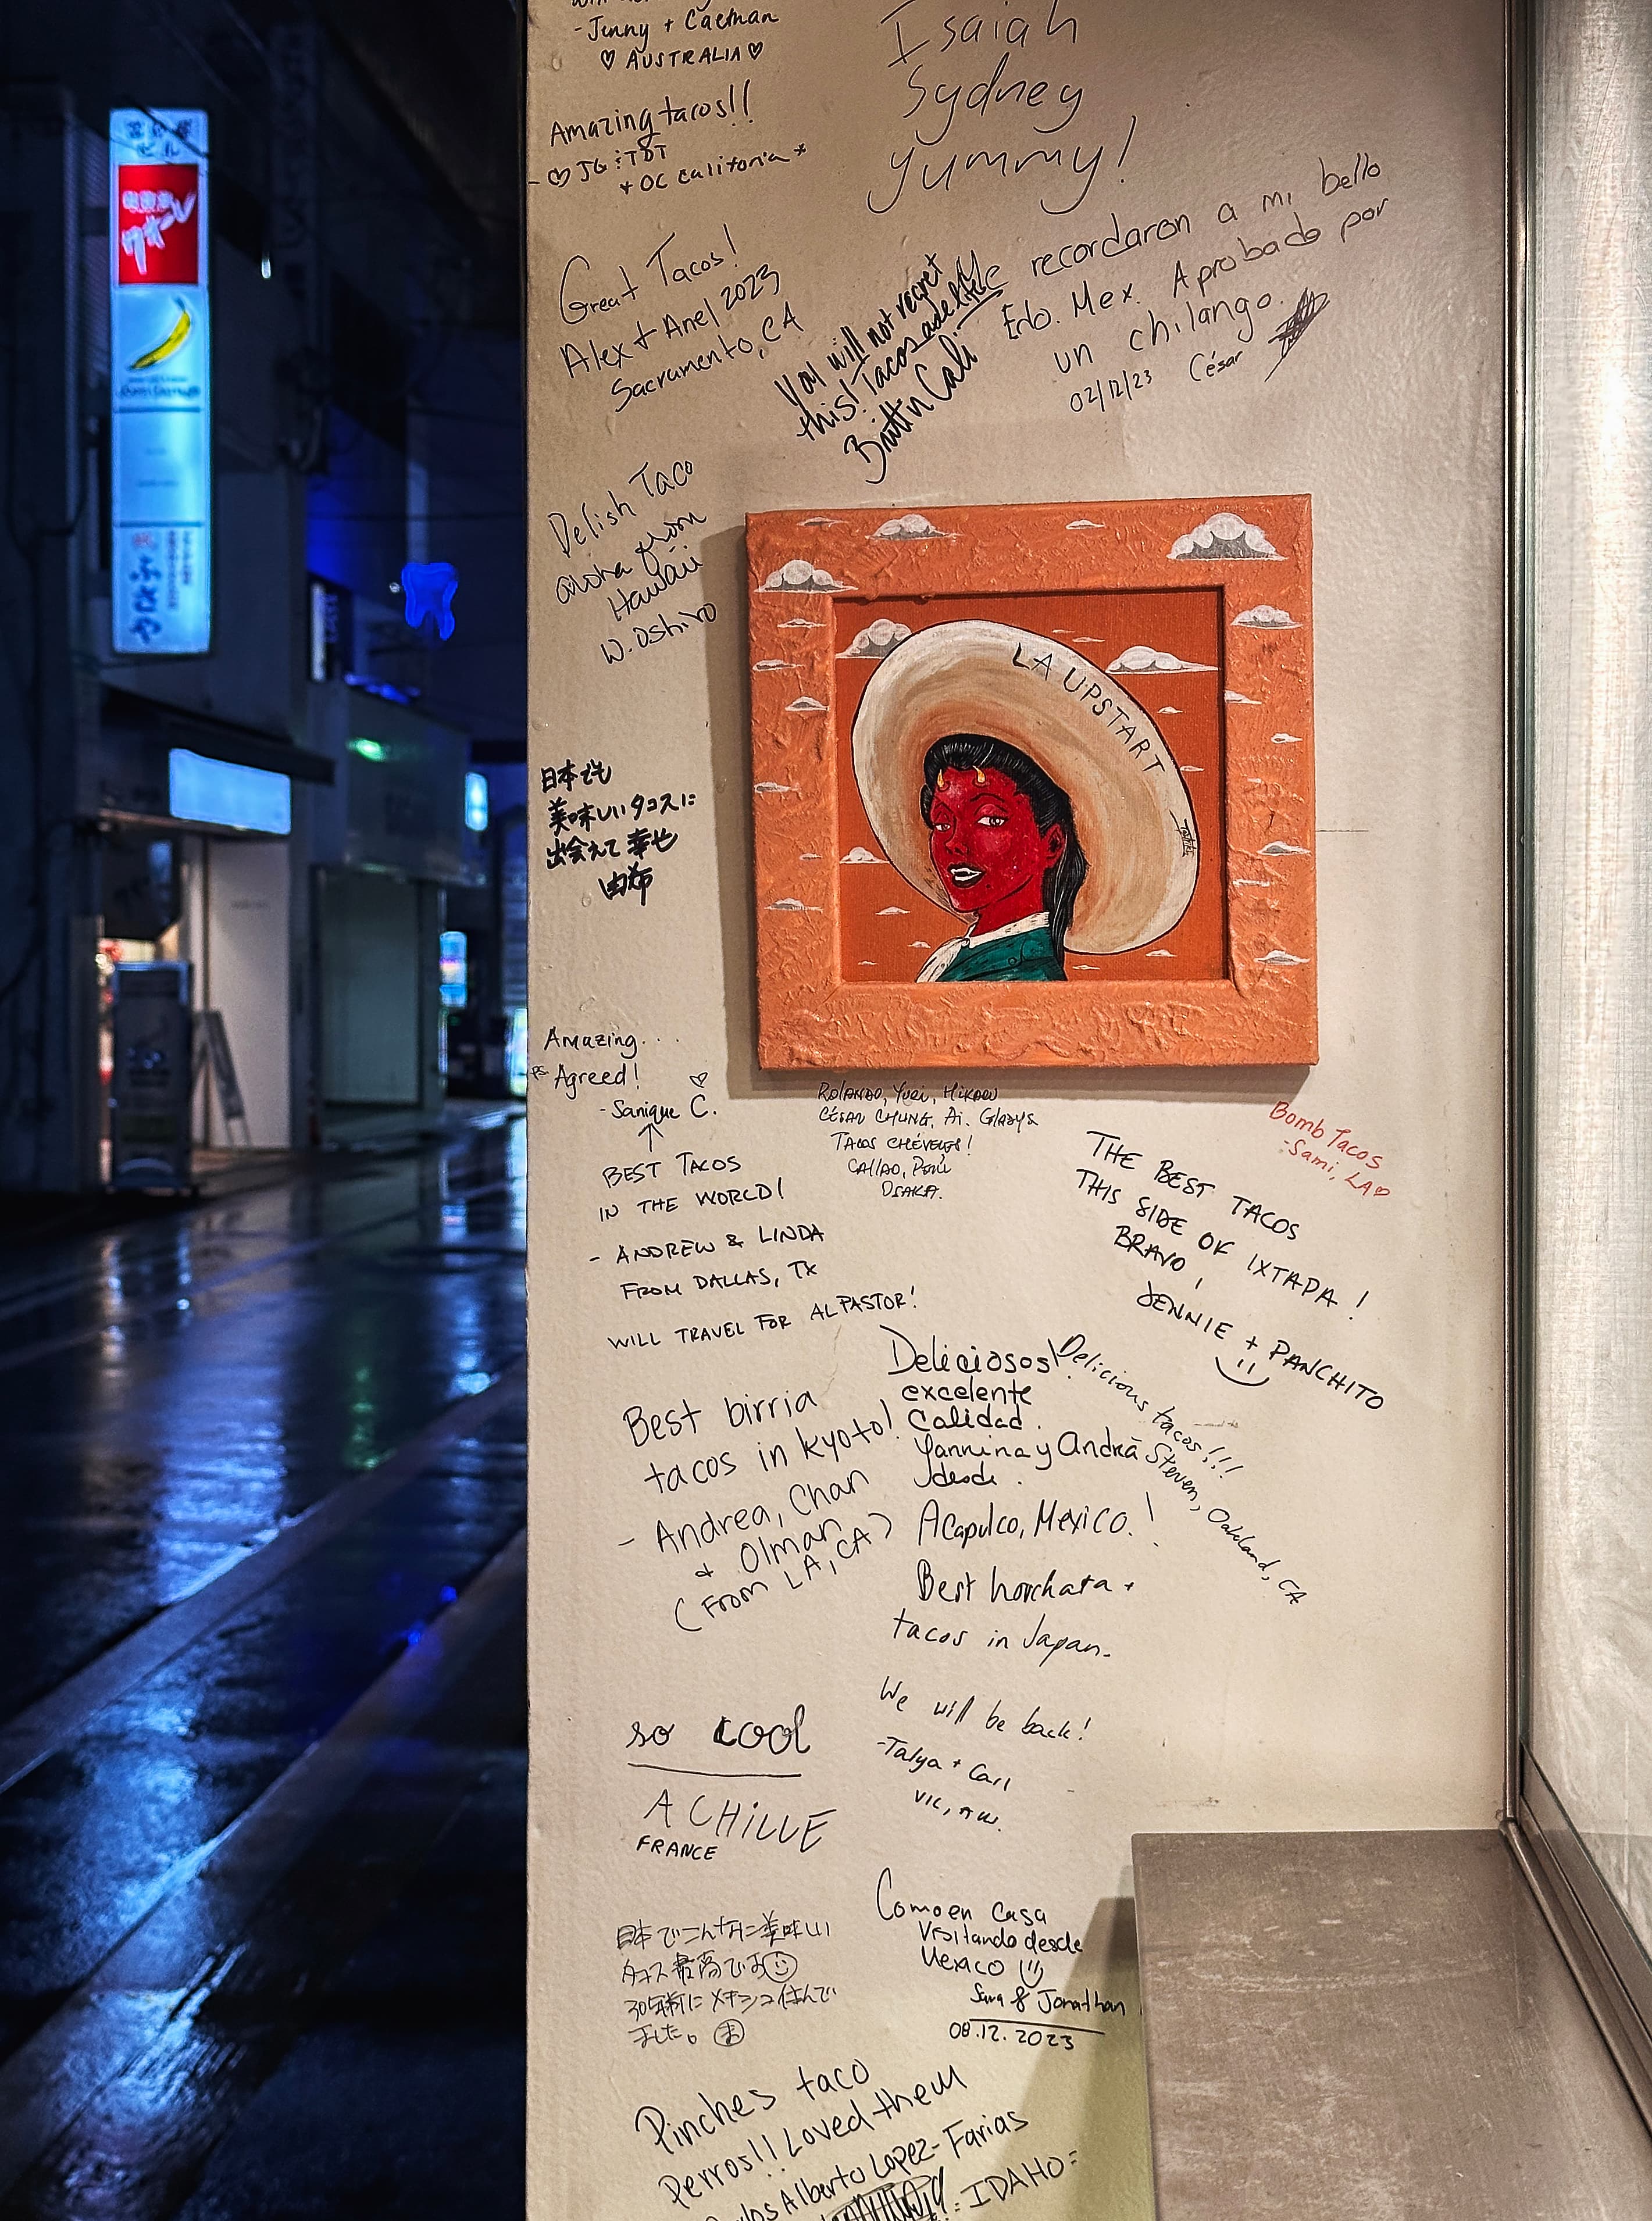 -Jenny + Caelman
♡ AUSTRALIA ♡
Amazing tacos!!
+ OC California *
Great Tacos!
Alex + Anel 2023
Sacramento, CA
Isaiah
Sydney
yummy!
You will not regret
this! Tacos
recordaron a mi bello
Edo. Mex. Aprobado por
un chilango.
02/12/23 César
Delish Taco
aloha from
Hawaii
W. Oshiro
LA UPSTART
日本でも
美味しいタコスに
出会えて幸せ
由希
Amazing...
PS Agreed!
- Sanique C.
BEST TACOS
IN THE WORLD!
- ANDREW & LINDA
FROM DALLAS, TX
WILL TRAVEL FOR AL PASTOR!
ROLANDO, YURI, HIKARU
CÉSAR CHUNG, Ai. GLADYS
TACOS CHÉVERES!
CALLAO, PERÚ
OSAKA.
Bomb Tacos
-Sami, LA♡
THE BEST TACOS
THIS SIDE OF IXTAPA!
BRAVO!
JENNIE + PANCHITO
Deliciosos!
excelente
Calidad.
Yannina y Andrea
desde.
Acapulco, Mexico.!
Delicious tacos!!!
Steven, Oakland, CA
Best birria
tacos in kyoto!
- Andrea, Chan
& Olman
(From LA, CA)
Best horchata +
tacos in Japan.
We will be back!
-Talya + Carl
VIC, AUS.
so cool
ACHILLE
FRANCE
日本でこんなに美味しい
タコス最高です
30年前にメキシコ住んで
ました。
Como en Casa
Visitando desde
Mexico
Sara & Jonathan
08.12.2023
Pinches taco
Perros!! Loved them
Carlos Alberto Lopez-Farias
IDAHO